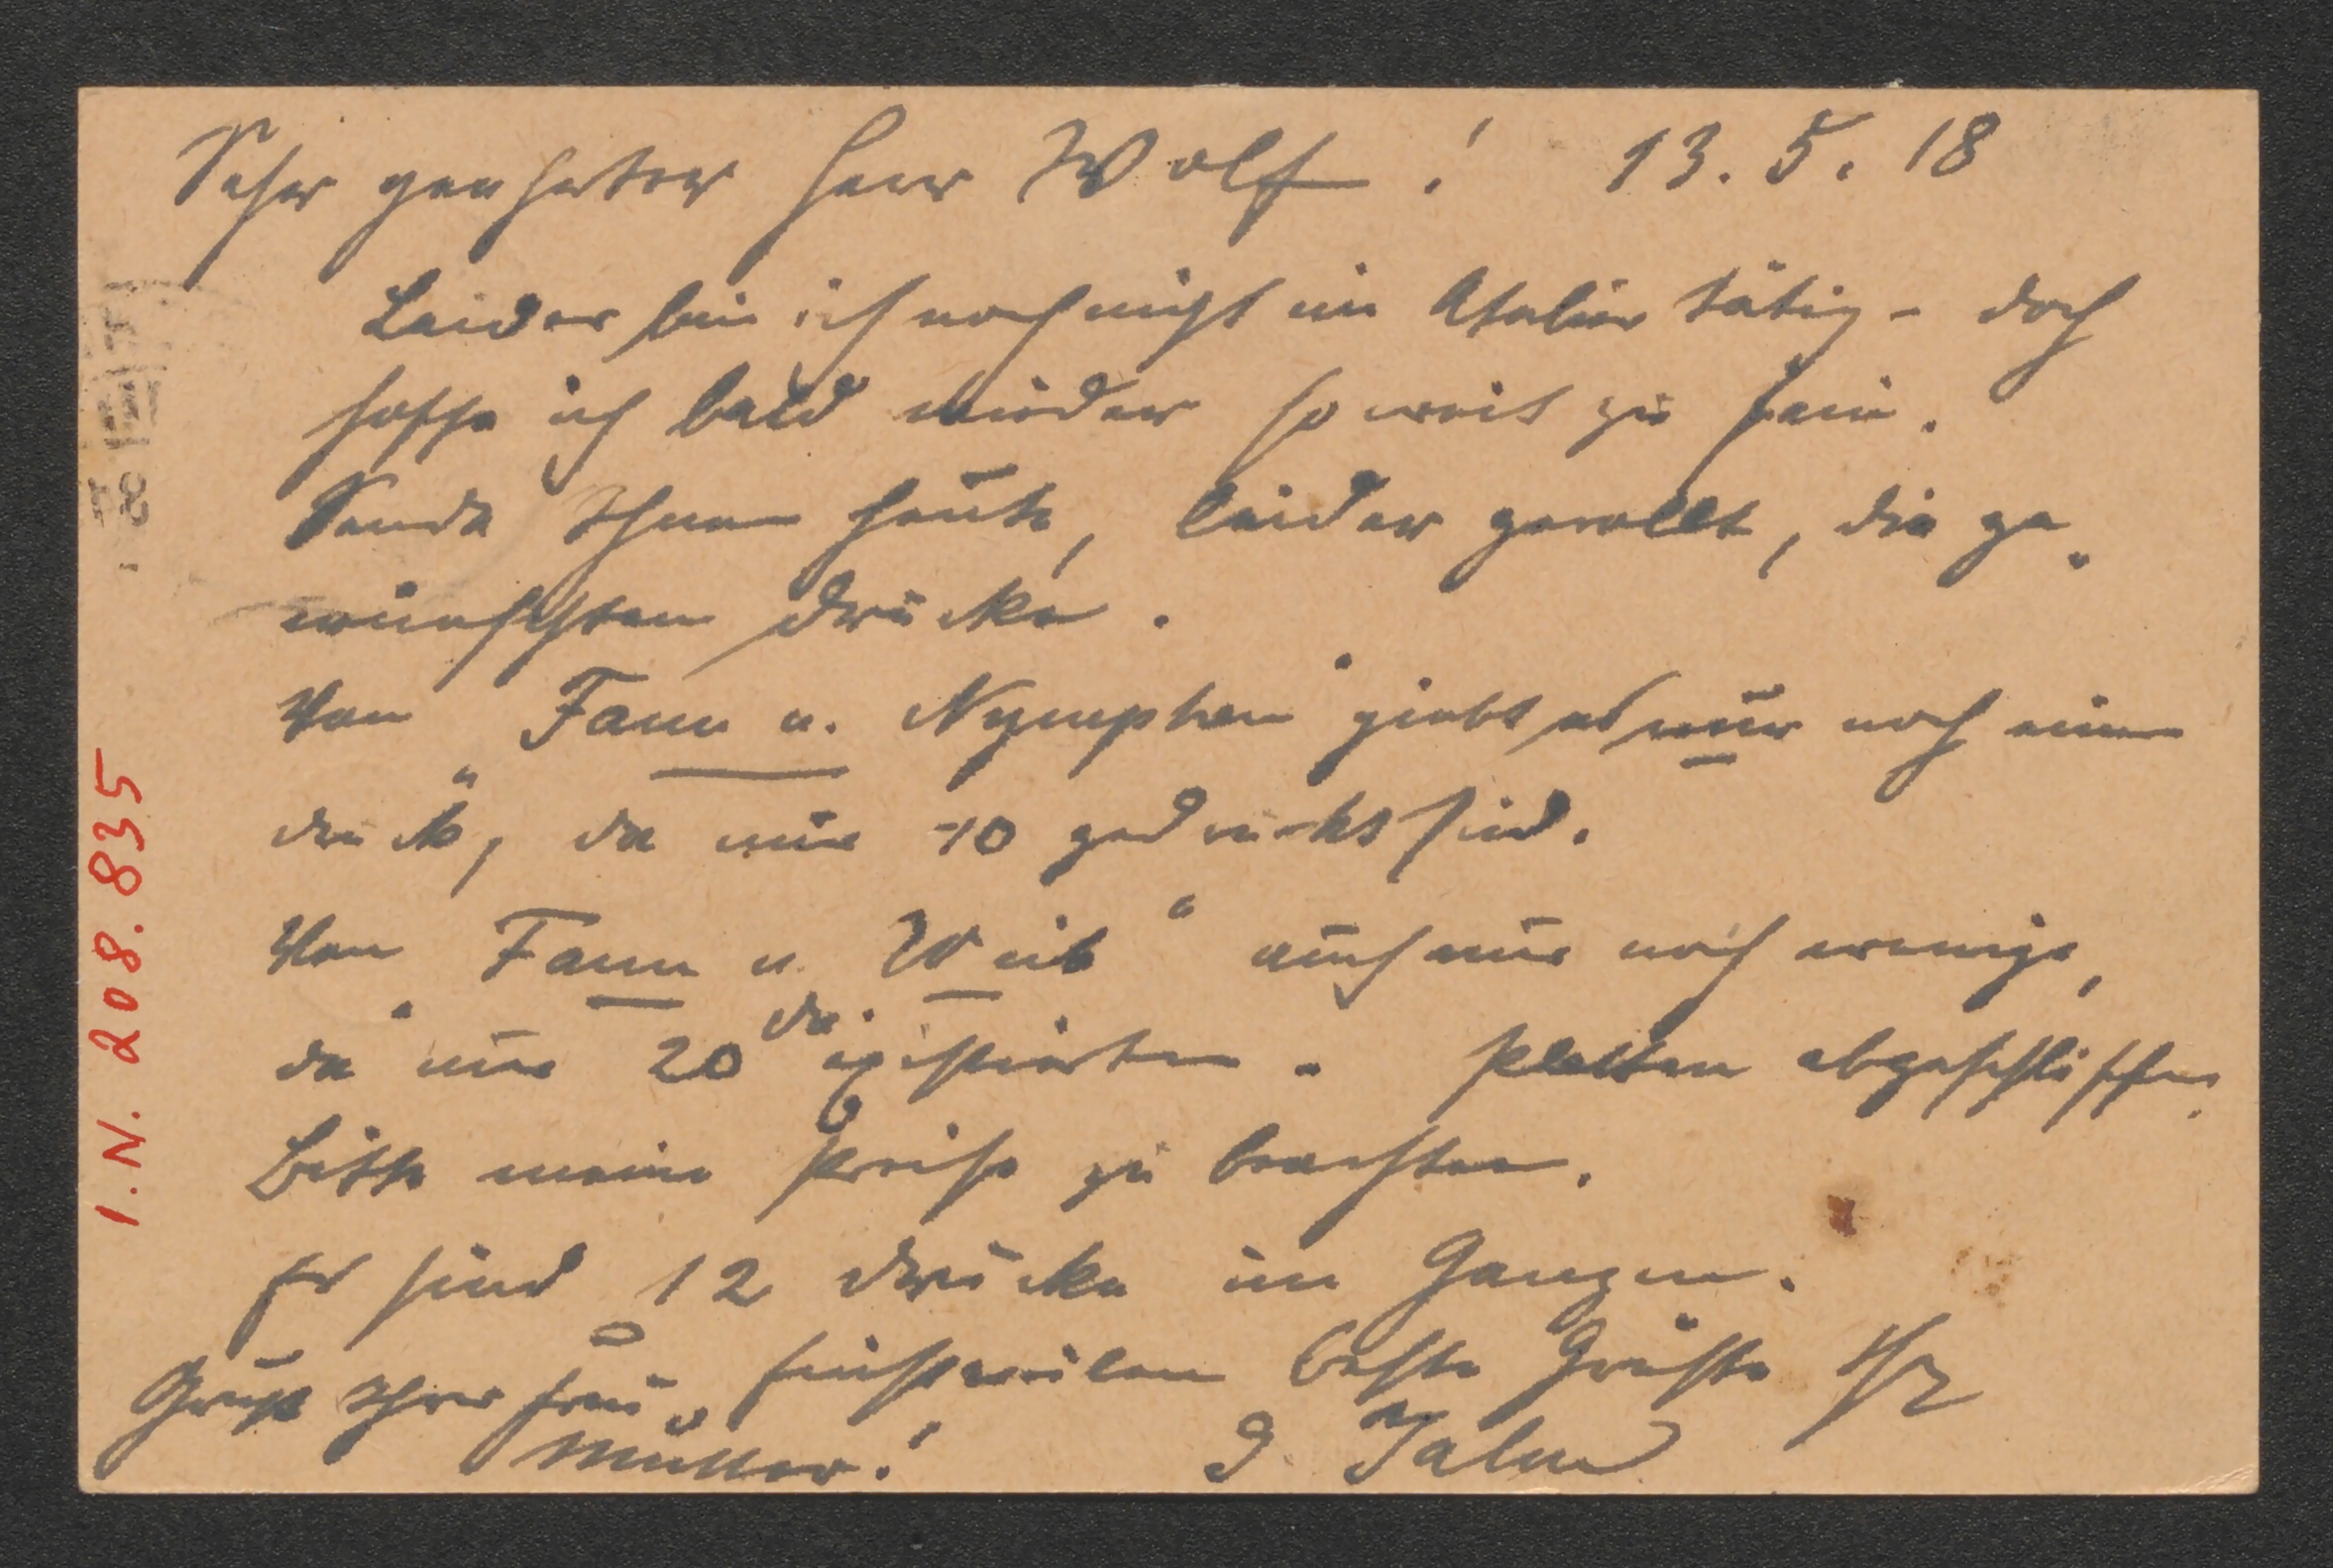 Sehr geehrter Herr Wolf! 13. 5. 18
Leider bin ich noch nicht im Atelier tätig - doch
hoffe ich bald wieder so weit zu sein.
Sende Ihnen heute, leider gerollt, die ge-
wünschten Drucke.
Von "Faun u. Nymphen" giebt es nur noch einen
Druck, da nur 10 gedruckt sind.
Von "Faun u. Weib" auch nur noch wenige,
da nur 20 existierten. Platten abgeschliffen.
Bitte meine Preise zu beachten.
Es sind 12 Drucke im Ganzen.
Einstweilen beste Grüsse Ihr
Gruss Ihrer Frau u.
Mutter!
I.N. 208.835